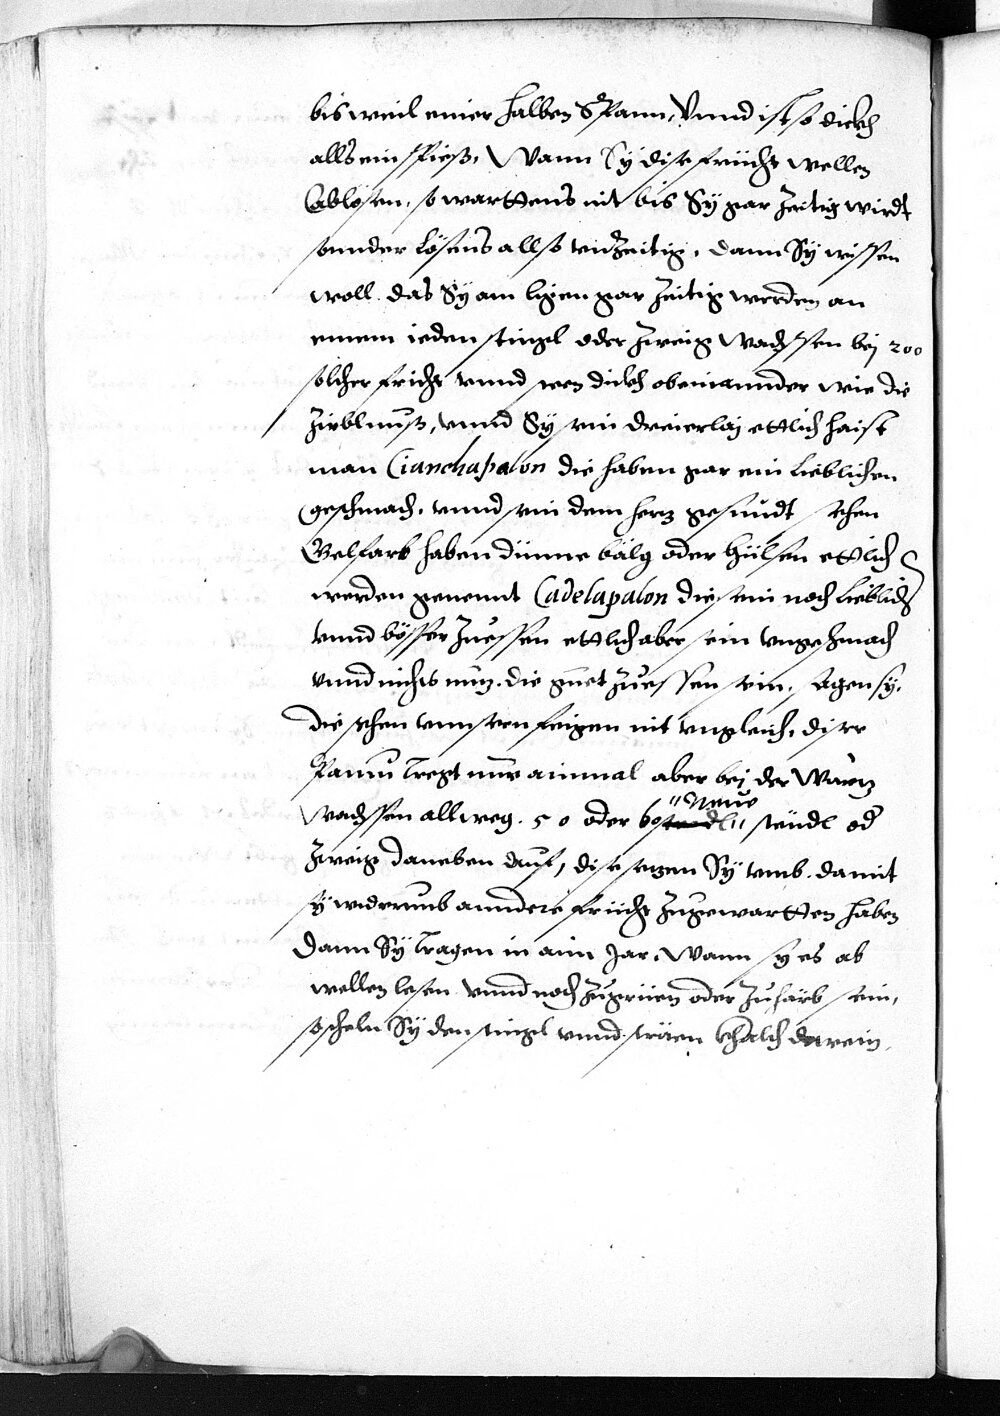 bisweil einer halben Spann, Vnnd ist so dickh
alls ein spieß, Wann Sÿ dise frücht wellen
Ablösen, so warttens nit bis Sÿ gar Zeitig wirdt
sonnder lösens allso vnzeitig, dann Sÿ wissen
woll das Sÿ am ligen gar Zeitig werden an
einem ieden stingl oder Zweig wachssen beÿ 200
solcher frücht vnnd sten dickh obeinannder wie die
Zirblnuß, vnnd Sÿ sein dreierlaÿ ettlich haist
man Cianchapalon die haben gar ein lieblichen
geschmach, vnnd sein dem herz gesundt sehen
Gelfarb haben dünne bälg oder hülsen ettlich
werden genennt Cadelapalon die sein noch lieblich
vnnd bösser Zuessen ettlich aber sein vngeschmach
vnnd nichts nuz. die guet Zuessen sein, sagen sÿ,
die sehen vnnsern feigen nit vngleich, diser
Pamm tregt nur ainmal aber beÿ der Wurz
wachssen allweg 50 oder 60 Neue steudl od
Zweig daneben auf, dise sezen Sÿ vmb damit
sÿ widerumb anndere frücht Zugewartten haben
dann Sÿ tragen in aim Jar. Wann sÿ es ab
wellen lesen vnnd noch Zugrüen oder Zuharb sein,
so scheln Sÿ den stingl vnnd sträen khalch darein,